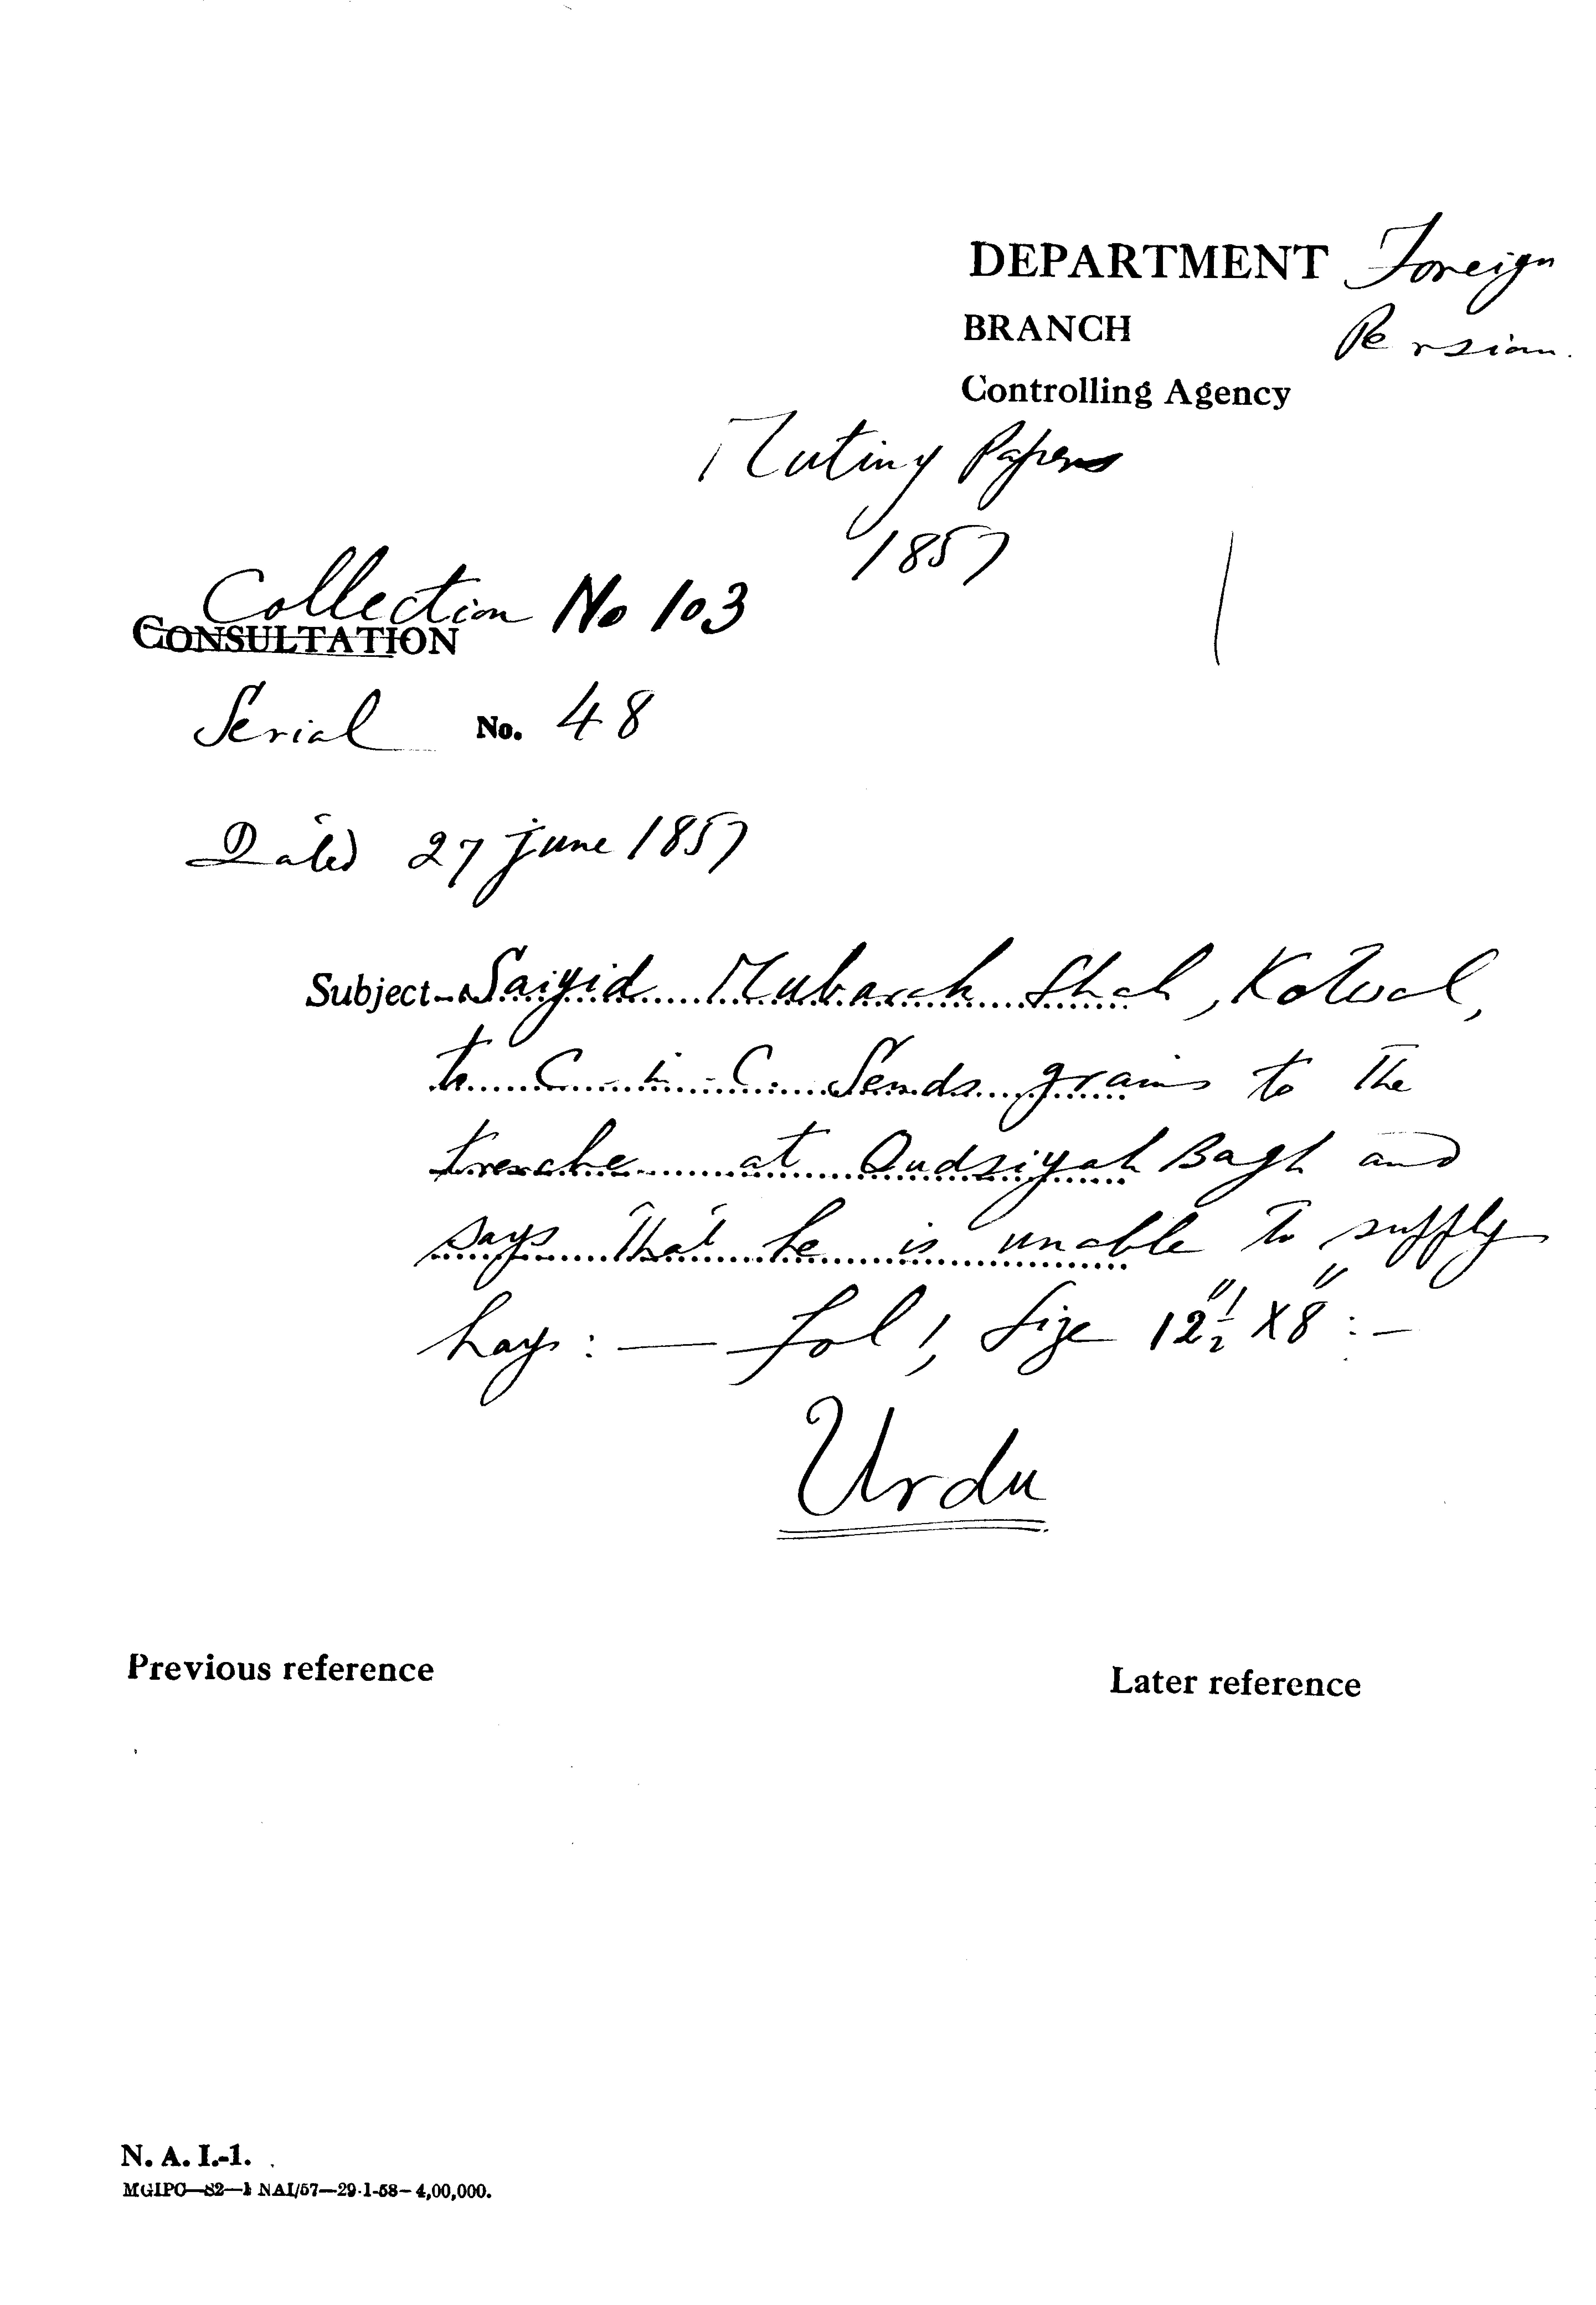 DEPARTMENT Foreign
BRANCH Persian.
Controlling Agency
Mutiny Papers
1857
Collection No 103
CONSULTATION
Serial No. 48
Dated 27 june 1857
Subject- Saiyid Mubarak Shah, Kotwal,
to C-in-C. Sends grains to the
trenche at Qudsiyah Bagh and
says that he is unable to supply
hay:— fol 1, Size 12"½ X 8":-
Urdu
Previous reference
Later reference
N. A. I.-1.
MGIPC—S2—1 NAI/57—29-1-58—4,00,000.